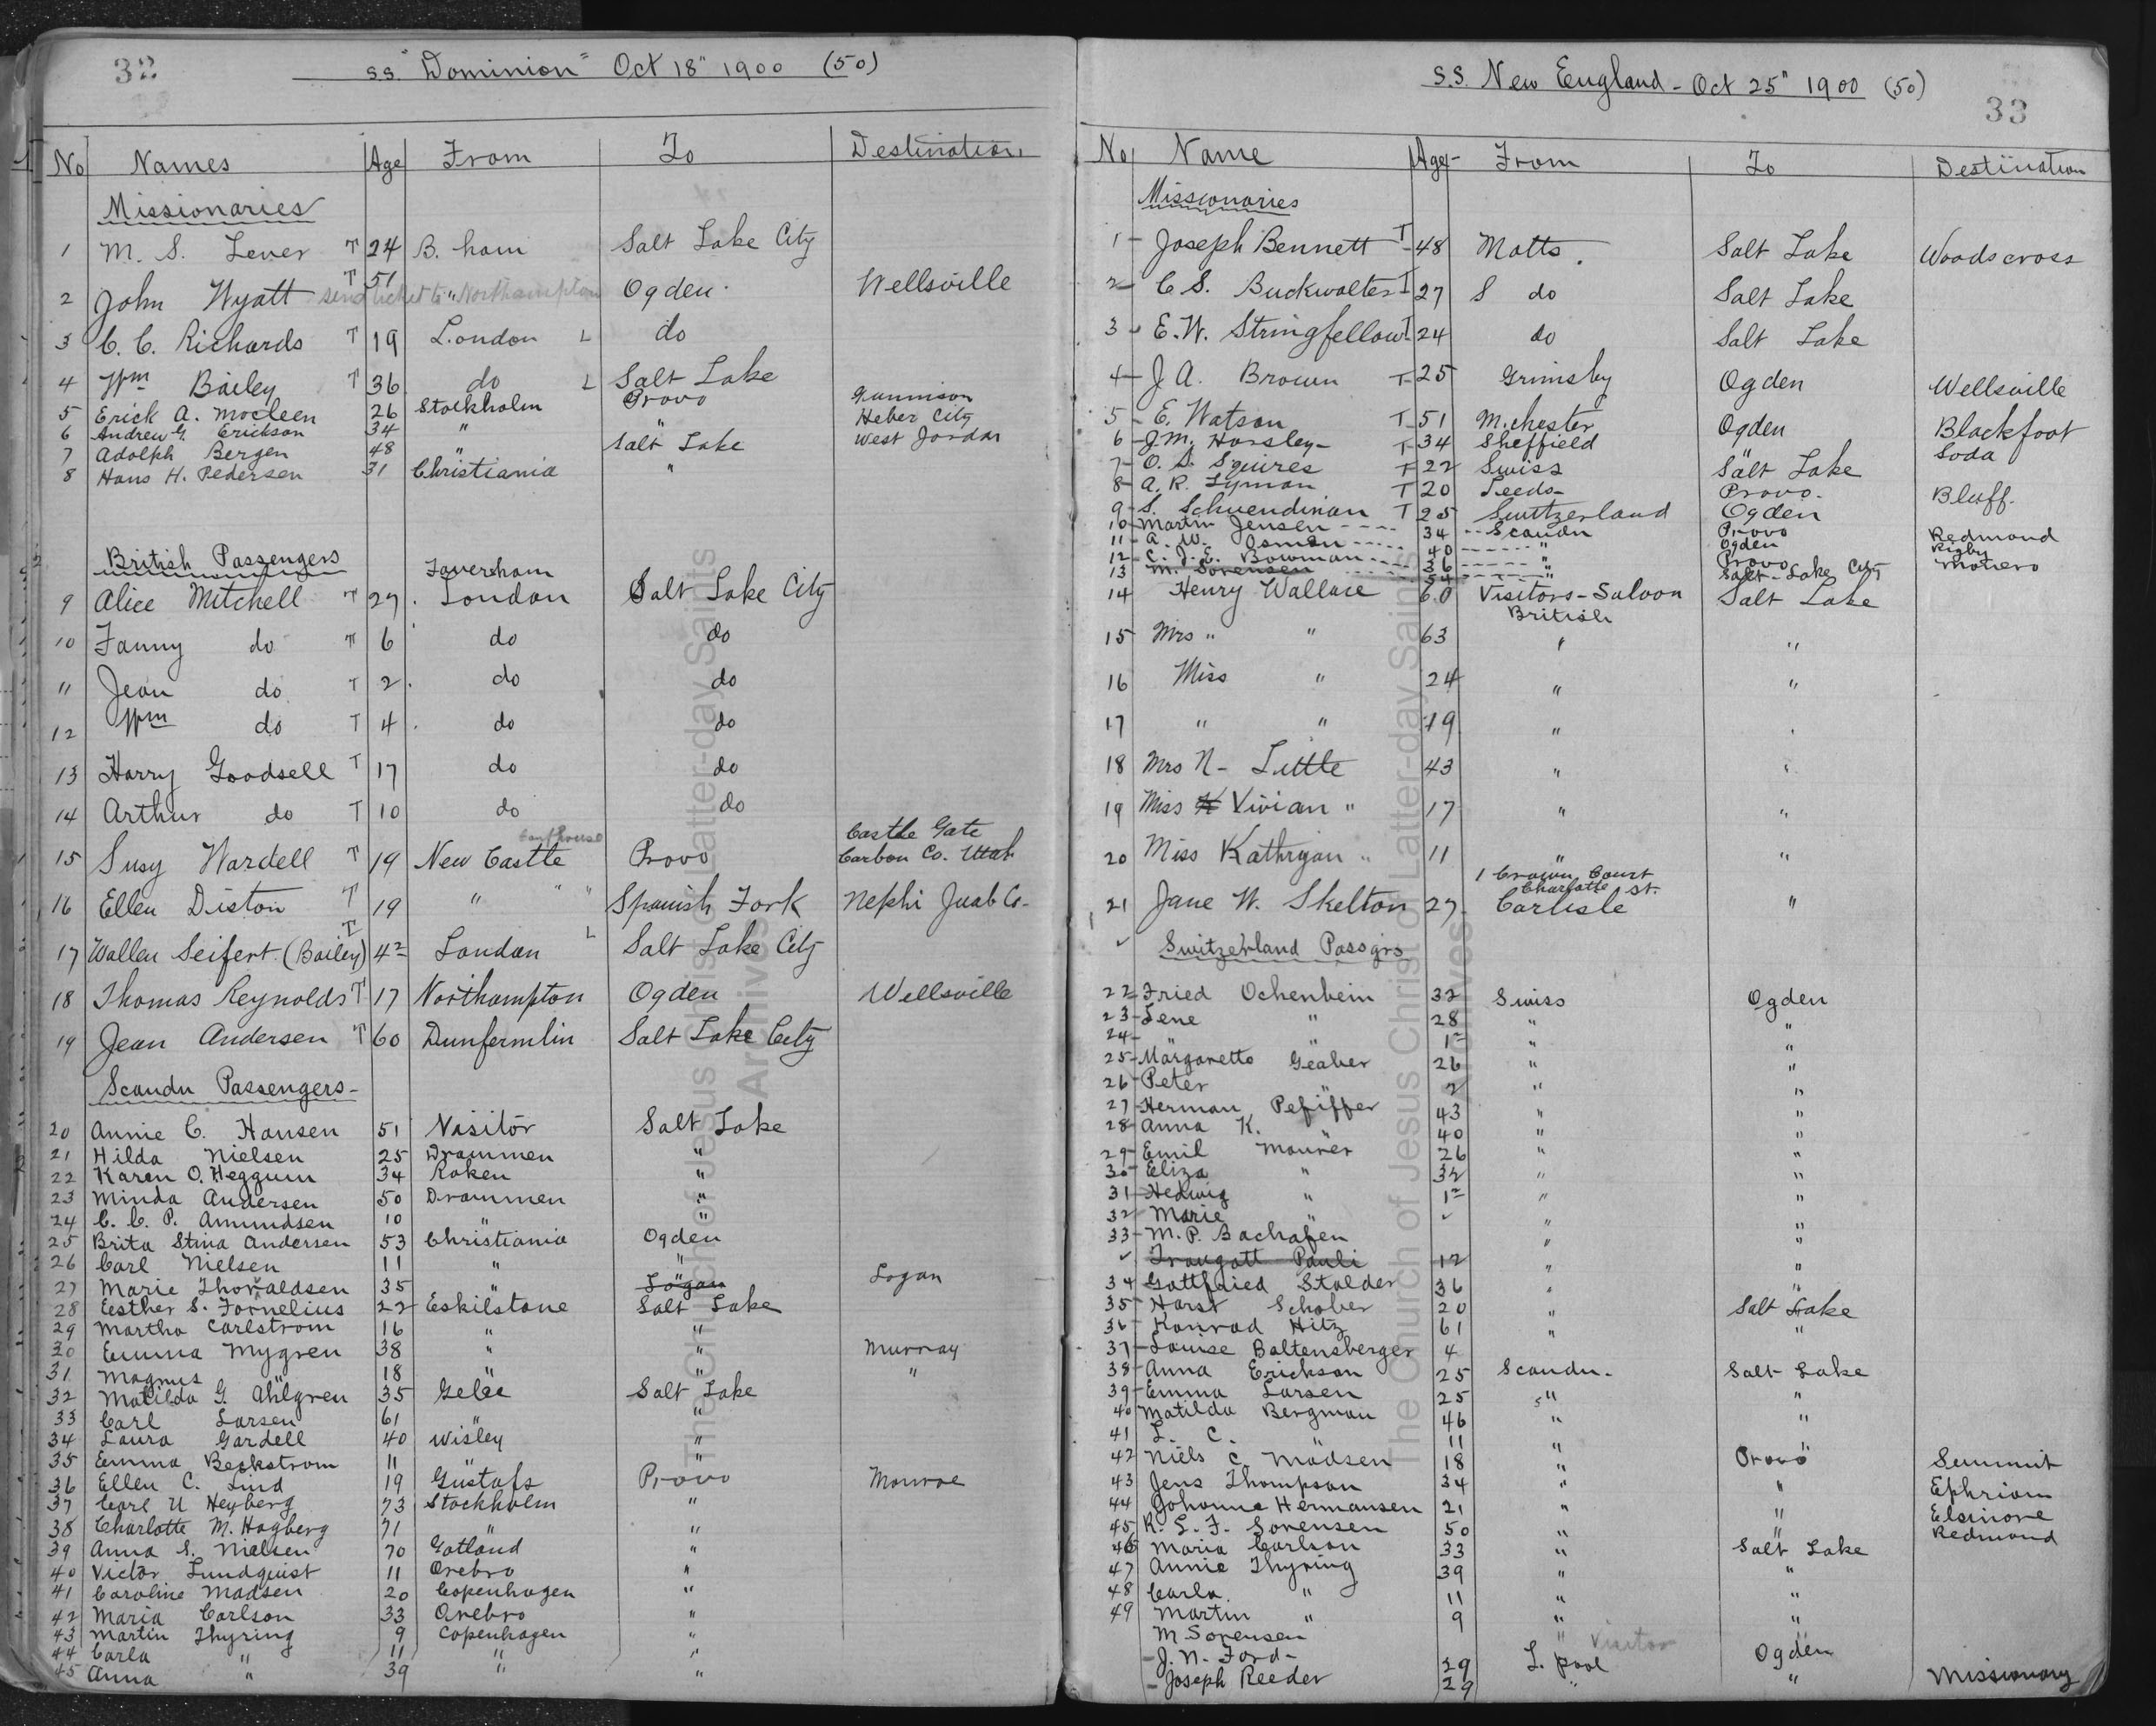 32
S.S. "Dominion" Oct 18" 1900 (50)
No Names Age From To Destination
Missionaries
1 M. S. Lever T 24 B. ham Salt Lake City
2 John Wyatt T 51 send ticket to "Northampton Ogden Wellsville
3 C. C. Richards T 19 London L do
4 Wm Bailey T 36 do L Salt Lake
5 Erick A. Mocleen 26 Stockholm Provo Gunnison
6 Andrew G. Erickson 34 " " Heber City
7 Adolph Bergen 48 " Salt Lake West Jordan
8 Hans H. Pedersen 31 Christiania "
British Passengers Faversham
9 Alice Mitchell T 27 London Salt Lake City
10 Fanny do T 6 do do
11 Jean do T 2 do do
12 Wm do T 4 do do
13 Harry Goodsell T 17 do do
14 Arthur do T 10 do do
15 Susy Wardell T 19 New Castle Provo Castle Gate
Carbon Co. Utah
16 Ellen Diston T 19 " " " Spanish Fork Nephi Juab Co.
17 Wallen Seifert (Bailey) T 42 London L Salt Lake City
18 Thomas Reynolds T 17 Northampton Ogden Wellsville
19 Jean Andersen T 60 Dunfermlin Salt Lake City
Scandn Passengers-
20 Annie C. Hansen 51 Visitor Salt Lake
21 Hilda Nielsen 25 Drammen "
22 Karen O. Heggum 34 Roken "
23 Minda Andersen 50 Drammen "
24 C. C. P. Amundsen 10 " "
25 Brita Stina Andersen 53 Christiania Ogden
26 Carl Nielsen 11 " "
27 Marie Thorvaldsen 35 " Logan Logan
28 Eesther S. Fornelius 22 Eskilstone Salt Lake
29 Martha Carlstrom 16 " "
30 Emma Mygren 38 " " Murray
31 Magnus " 18 " " "
32 Matilda G. Ahlgren 35 Gelee Salt Lake
33 Carl Larsen 61 " "
34 Laura Gardell 40 Wisley "
35 Emma Beckstrom 11 " "
36 Ellen C. Lind 19 Gustafs Provo Monroe
37 Carl U Heyberg 73 Stockholm "
38 Charlotte M. Hagberg 71 " "
39 Anna S. Nielsen 70 Gotland "
40 Victor Lundquist 11 Orebro "
41 Caroline Madsen 20 Copenhagen "
42 Maria Carlson 33 Orebro "
43 Martin Thyring 9 Copenhagen "
44 Carla " 11 " "
45 Anna " 39 " "
S.S. New England - Oct 25" 1900 (50)
33
No Name Age From To Destination
Missionaries
1 Joseph Bennett T 48 Notts. Salt Lake Woodscross
2 C S. Buckwalter T 27 S do Salt Lake
3 E. W. Stringfellow T 24 do Salt Lake
4 J A. Brown T 25 Grimsby Ogden Wellsville
5 E. Watson T 51 M.chester Ogden Blackfoot
6 J. M. Horsley T 34 Sheffield " Soda
7 O. S. Squires T 22 Swiss Salt Lake
8 A. R. Lyman T 20 Leeds Provo. Bluff.
9 S. Schwendiman T 25 Switzerland Ogden
10 Martin Jensen 34 Scandn Provo Redmond
11 A. W. Osman 40 " Ogden Rigby
12 C. J. E. Bowman 36 " Provo
13 M. Sorensen 54 " Salt Lake City
14 Henry Wallace 60 Visitors-Saloon Salt Lake
British
15 Mrs " " 63 " "
16 Miss " 24 " "
17 " " 19 " "
18 Mrs N- Little 43 " "
19 Miss Vivian " 17 " "
20 Miss Kathryan " 11 " "
1 Crown Court
Charlotte St.
21 Jane W. Skelton 27 Carlisle "
Switzerland Passgrs
22 Fried Ochenbein 32 Swiss Ogden
23 Lene " 28 " "
24 " " 1 " "
25 Margaretto Geaber 26 " "
26 Peter 2 " "
27 Herman Pefiffer 43 " "
28 Anna K. " 40 " "
29 Emil Maurer 26 " "
30 Eliza " 32 " "
31 Hedwig " 1 " "
32 Marie " " "
33 M. P. Bachafen " "
Traugott Pauli 12 "
34 Gottfried Stalder 36 " "
35 Horst Schober 20 " Salt Lake
36 Konrad Hitz 61 " "
37 Louise Baltensberger 4
38 Anna Erickson 25 Scandn. Salt Lake
39 Emma Larsen 25 " "
40 Matilda Bergman 46 " "
41 L. C. " 11 "
42 Niels C. Madsen 18 " Provo Summit
43 Jens Thompson 34 " " Ephriam
44 Johanna Hermansen 21 " " Elsinore
45 R. L. F. Sorensen 50 " " Redmond
46 Maria Carlson 33 " Salt Lake
47 Annie Thyring 39 " "
48 Carla " 11 " "
49 Martin " 9 " "
M Sorensen " Visitor
J. N. Ford 29 L. pool Ogden
Joseph Reeder 29 " " Missionary
The Church of Jesus Christ of Latter-day Saints
Archives
The Church of Jesus Christ of Latter-day Saints
Archives